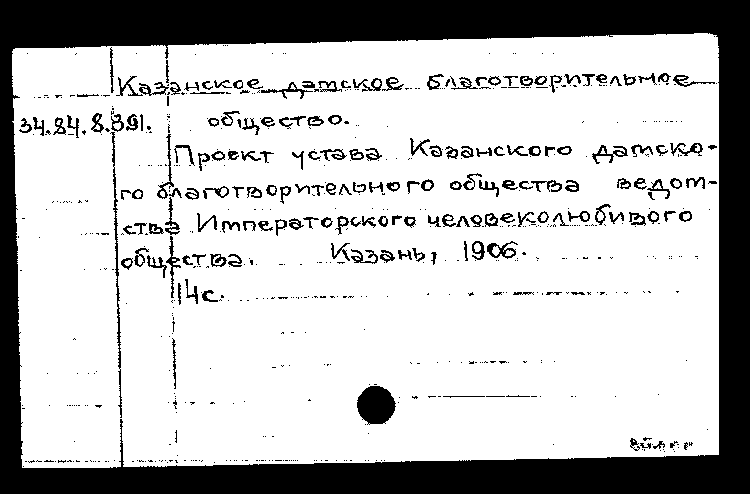 Казанское датское благотворительное
34.84.8.391. общество.
Проект устава Казанского датско-
го благотворительного общества ведом-
ства Императорского человеколюбивого
общества. Казань, 1906.
14с.